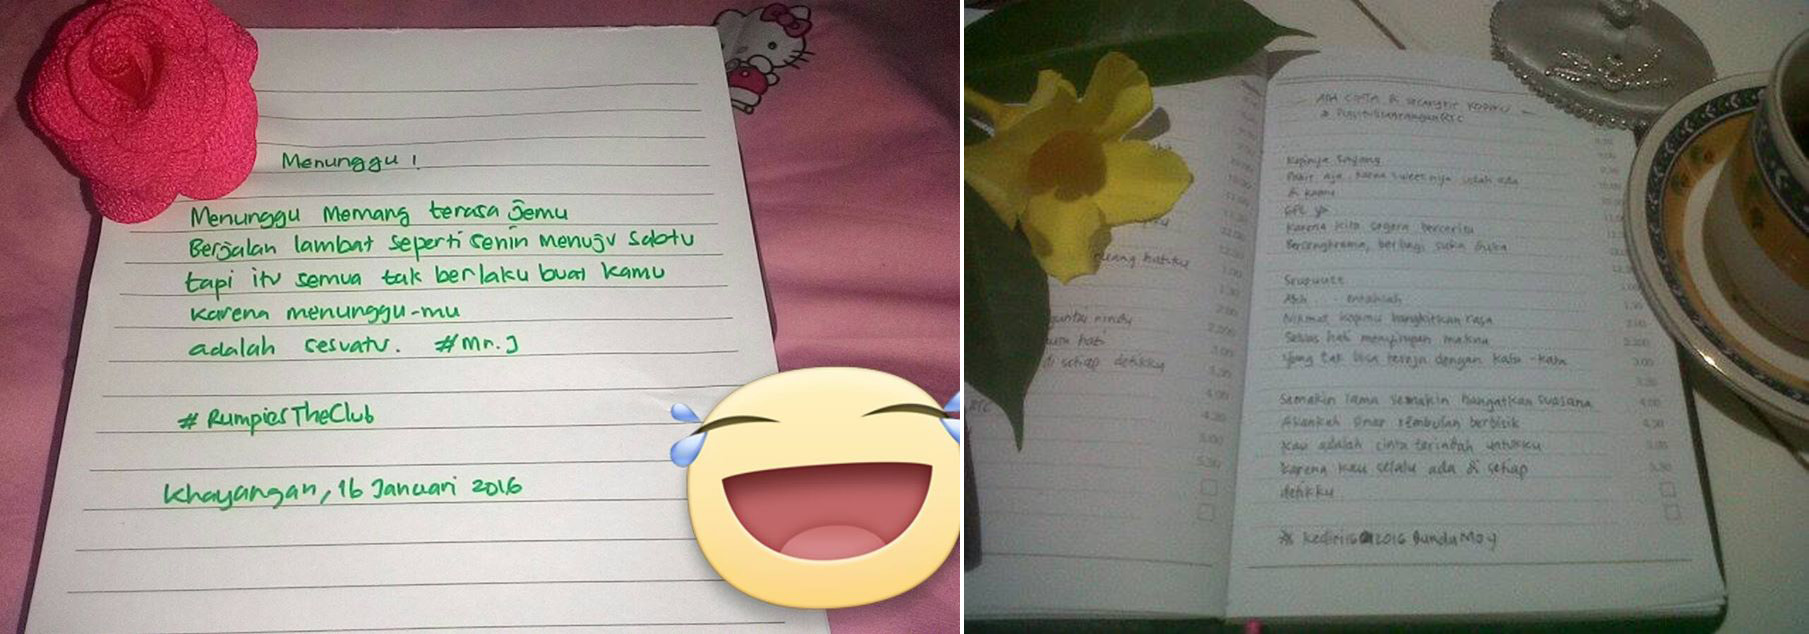 Menunggu !
Menunggu Memang terasa Jemu
Berjalan lambat seperti Senin Menuju Sabtu
tapi itu semua tak berlaku buat kamu
karena menunggu-mu
adalah sesuatu. #Mr.J
#RumpiesTheClub
Khayangan, 16 Januari 2016
ADA CINTA di secangkir kopimu
Kopinya Sayang
Pahit aja, karna sweetnya udah ada
di kamu
GPL ya
Karena kita segera bercerita
Bersengkrama, berbagi suka duka
Sruputtt
Ahh... entahlah
Nikmat kopimu bangkitkan rasa
Seluas hati menyimpan makna
yang tak bisa tereja dengan kata-kata
Semakin lama semakin hangatkan suasana
Akankah sinar rembulan berbisik
Kau adalah cinta terindah untukku
karena kau selalu ada di setiap
detikku
2016 Bunda Moy
ruang hatiku
di setiap detikku